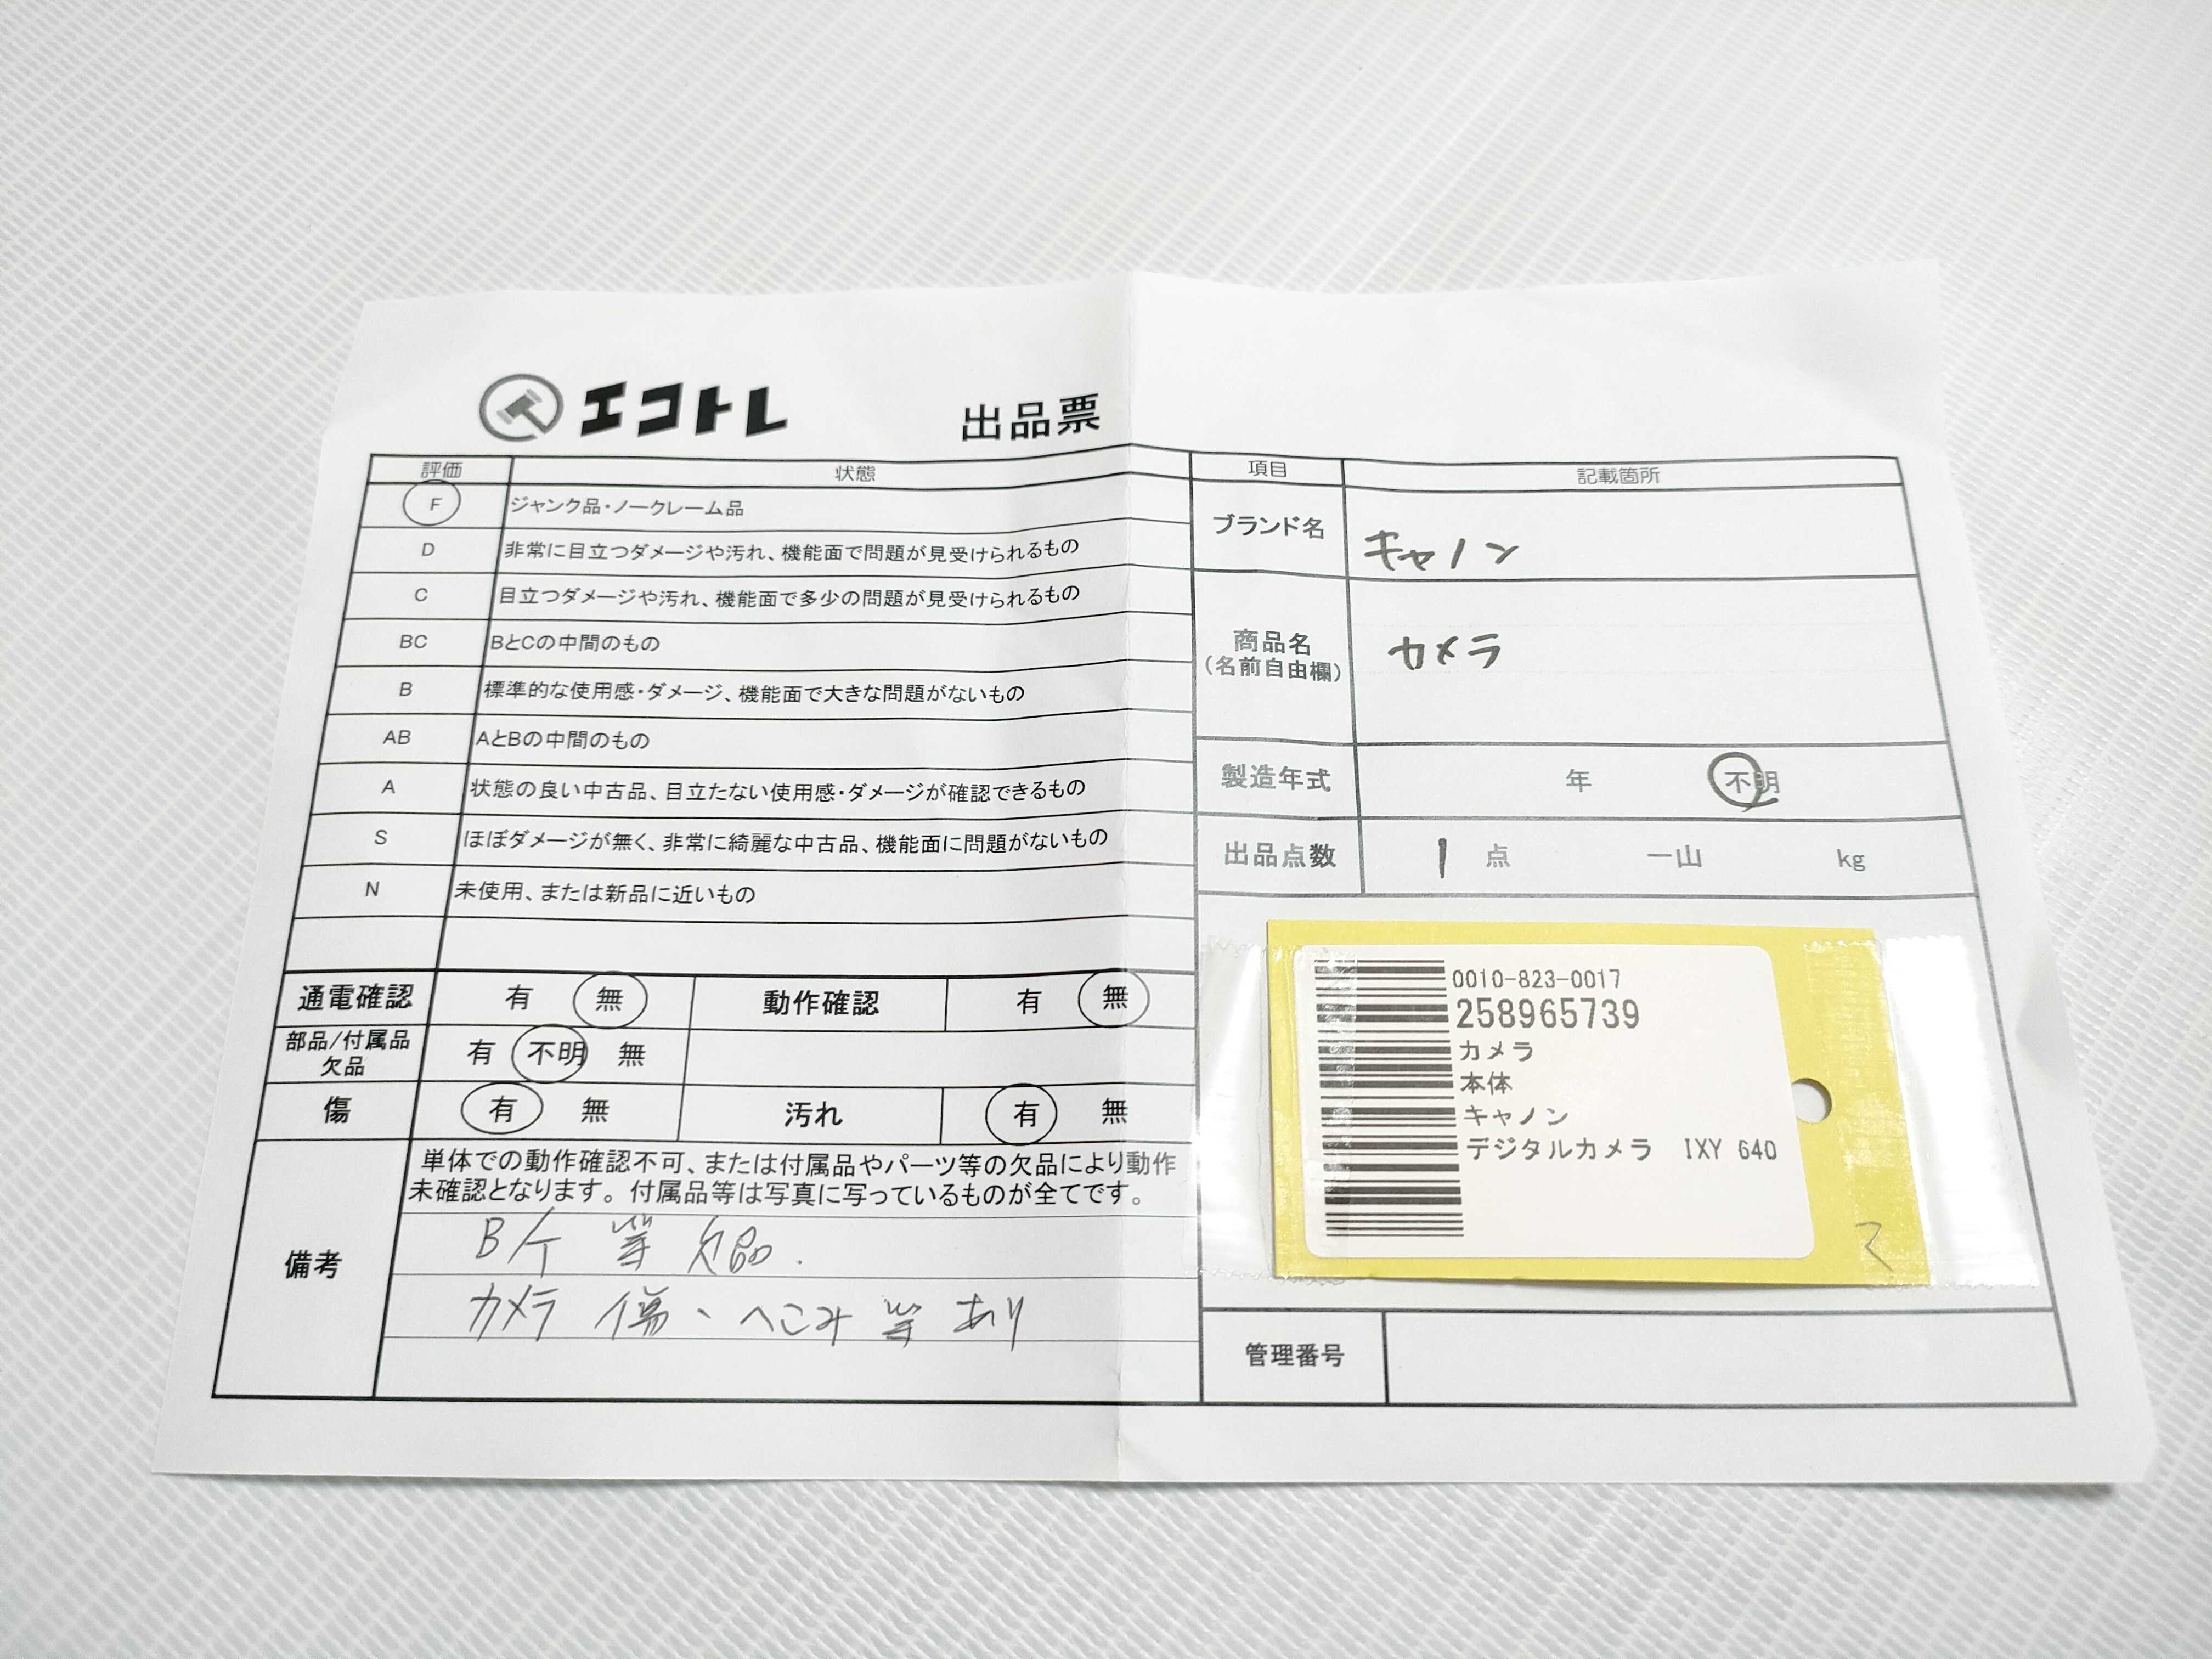 エコトレ 出品票
評価 状態
F ジャンク品・ノークレーム品
D 非常に目立つダメージや汚れ、機能面で問題が見受けられるもの
C 目立つダメージや汚れ、機能面で多少の問題が見受けられるもの
BC BとCの中間のもの
B 標準的な使用感・ダメージ、機能面で大きな問題がないもの
AB AとBの中間のもの
A 状態の良い中古品、目立たない使用感・ダメージが確認できるもの
S ほぼダメージが無く、非常に綺麗な中古品、機能面に問題がないもの
N 未使用、または新品に近いもの
通電確認 有 無 動作確認 有 無
部品/付属品
欠品 有 不明 無
傷 有 無 汚れ 有 無
備考
単体での動作確認不可、または付属品やパーツ等の欠品により動作
未確認となります。付属品等は写真に写っているものが全てです。
B/T 等 欠品.
カメラ 傷、へこみ 等 あり
項目 記載箇所
ブランド名 キャノン
商品名
(名前自由欄) カメラ
製造年式 年 不明
出品点数 1 点 一山 kg
0010-823-0017
258965739
カメラ
本体
キャノン
デジタルカメラ IXY 640
管理番号